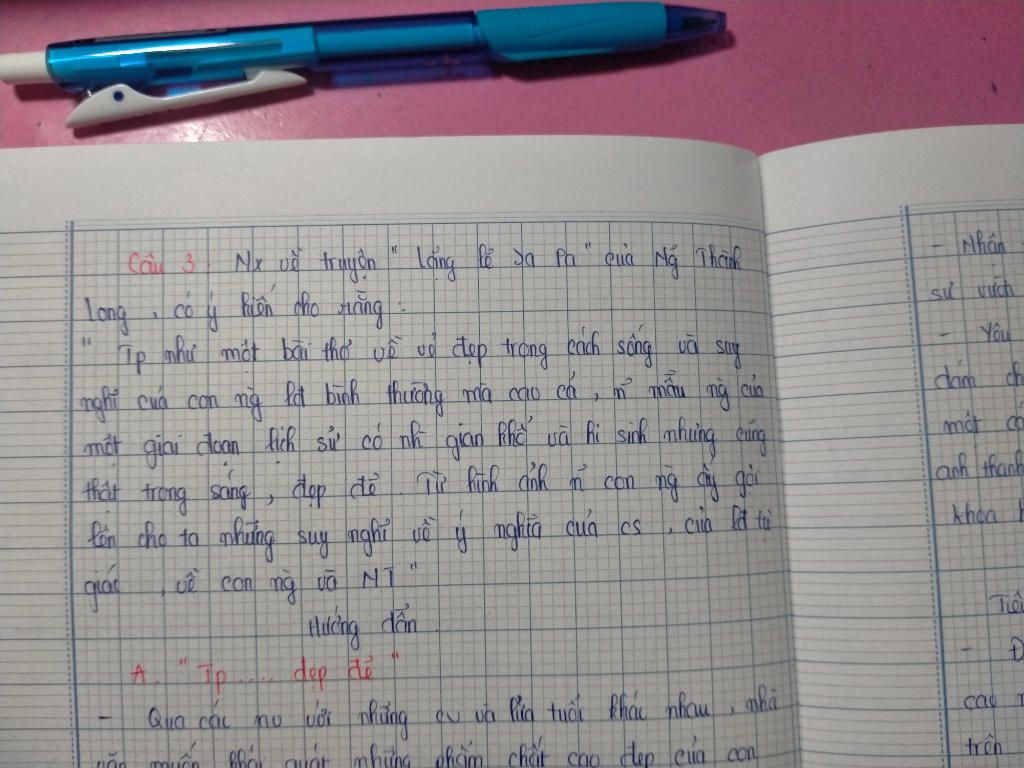 Câu 3. Nx về truyện " Lặng lẽ Sa Pa " của Ng Thành
Long , có ý kiến cho rằng :
" Tp như một bài thơ về vẻ đẹp trong cách sống và suy
nghĩ của con ng lđ bình thường mà cao cả, n~ mẫu ng của
một giai đoạn lịch sử có nh` gian khổ và hi sinh nhưng cũng
thật trong sáng, đẹp đẽ. Từ hình ảnh n~ con ng ấy gợi
lên cho ta những suy nghĩ về ý nghĩa của cs , của lđ tự
giác , về con ng và NT "
Hướng dẫn
A. " Tp ..... đẹp đẽ "
- Qua các nv với những cv và lứa tuổi khác nhau, nhà
văn muốn khái quát những phẩm chất cao đẹp của con
- Nhân
sư vườn
- Yêu
dám ch
một
anh thanh
khoa h
- Đ
cao
trên